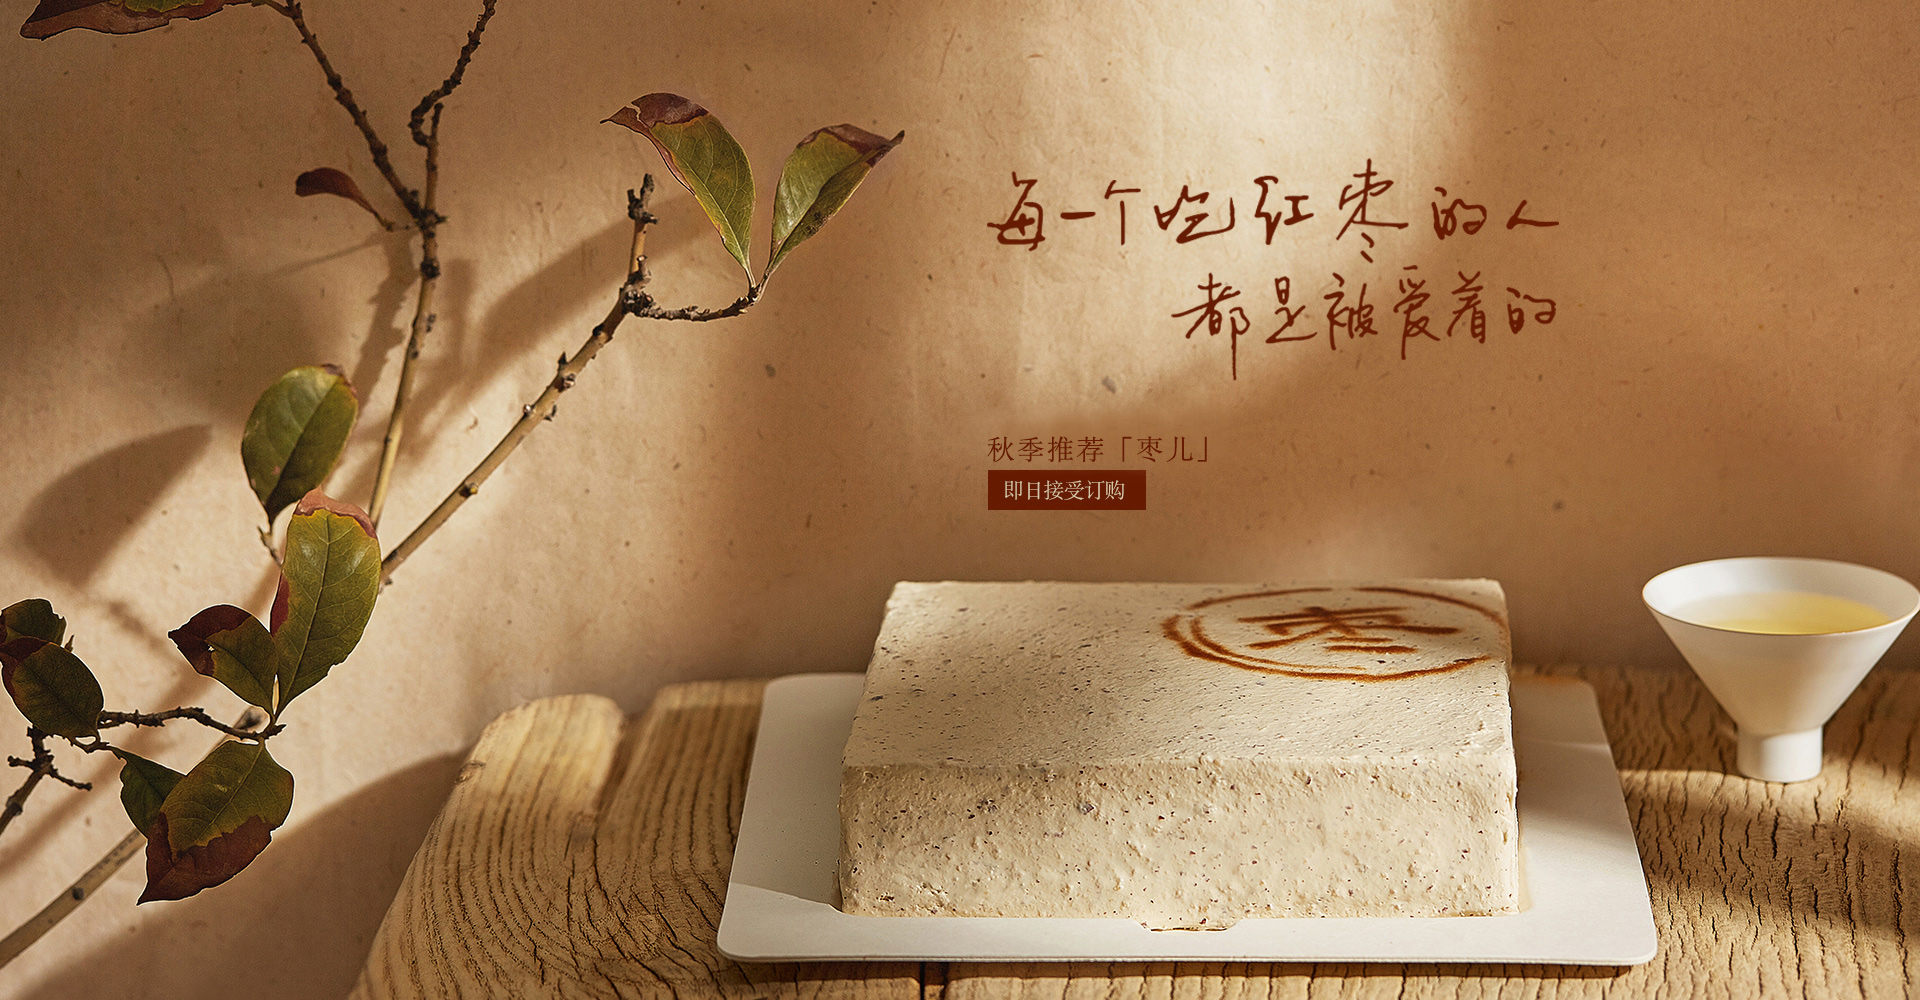 每一个吃红枣的人
都是被爱着的
秋季推荐「枣儿」
即日接受订购
枣